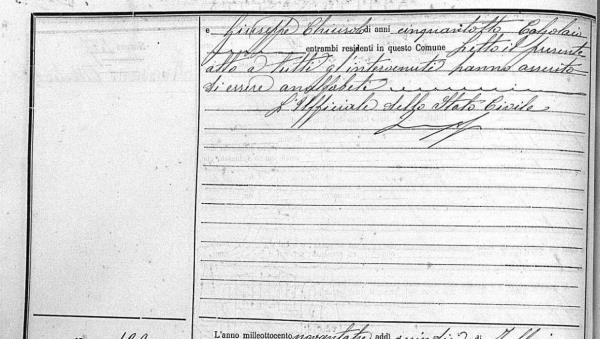 e Giuseppe Chierico di anni cinquantotto Calzolaio
entrambi residenti in questo Comune Letto il presente
atto a tutti gl'intervenuti hanno asserito
di essere analfabeti
L'Uffiziale dello Stato Civile
L'anno milleottocento novantatre addì quindici di